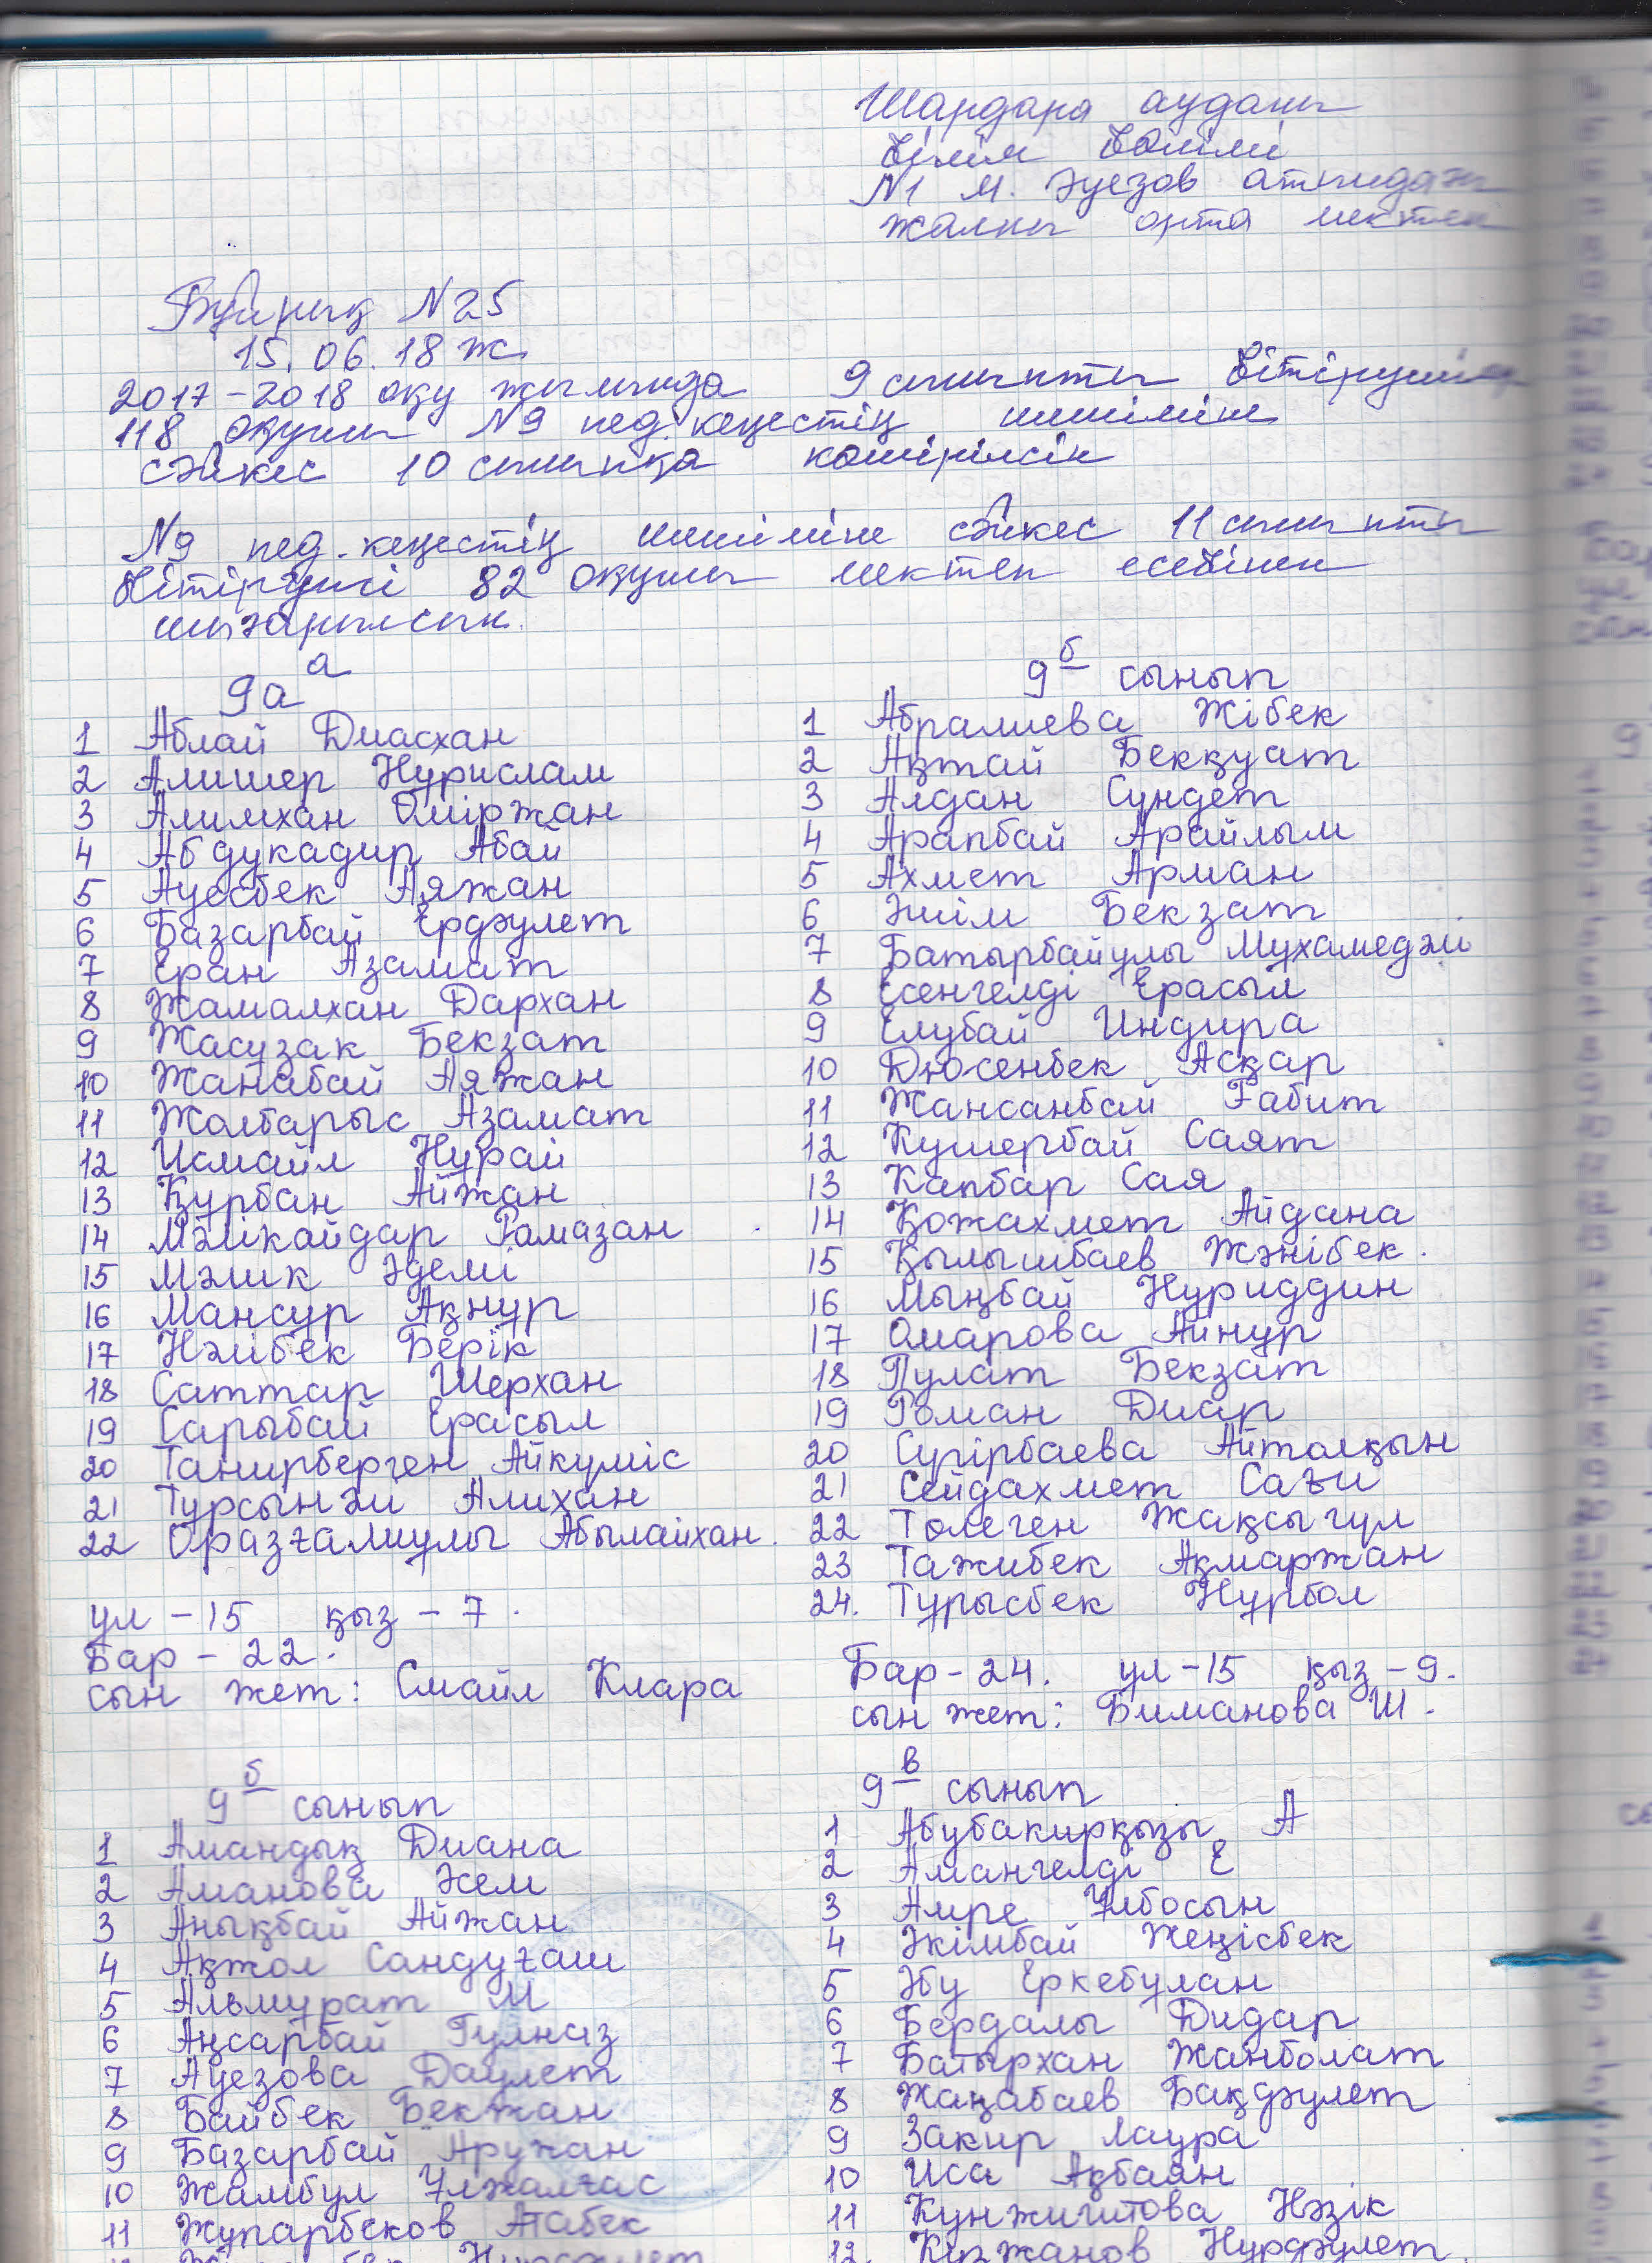 Шардара ауданы
білім бөлімі
N1 М. Әуезов атындағы
жалпы орта мектеп
Бұйрық N25
15.06.18 ж
2017-2018 оқу жылында 9 сыныпты бітіруші
118 оқушы N9 пед. кеңестің шешіміне
сәйкес 10 сыныпқа көшірілсін
N9 пед. кеңестің шешіміне сәйкес 11 сыныпты
бітіруші 82 оқушы мектеп есебінен
шығарылсын.
9а а
1 Аблай Диасхан
2 Алишер Нурислам
3 Алимхан Өміржан
4 Абдукадир Абай
5 Ауесбек Аяжан
6 Базарбай Ердәулет
7 Еран Азамат
8 Жамалхан Дархан
9 Жасузак Бекзат
10 Жанабай Аяжан
11 Жолбарыс Азамат
12 Исмайл Нұрай
13 Құрбан Айжан
14 Мәлікайдар Рамазан
15 Мәлик Әдемі
16 Мансур Ақнұр
17 Нәлібек Берік
18 Саттар Шерхан
19 Сарыбай Ерасыл
20 Танирберген Айкүміс
21 Турсынәли Алихан
22 Оразғалиұлы Абылайхан.
ұл - 15 қыз - 7.
Бар - 22.
сын жет: Смайл Клара
9 б сынып
1 Абралиева Жібек
2 Ақтай Бекқуат
3 Алдан Сүндет
4 Арапбай Арайлым
5 Ахмет Арман
6 Әлім Бекзат
7 Батырбайұлы Мұхамедәли
8 Есенгелді Ерасыл
9 Елубай Индира
10 Дюсенбек Асқар
11 Жансанбай Ғабит
12 Кушербай Саят
13 Капбар Сая
14 Қожахмет Айдана
15 Қылышбаев Жәнібек.
16 Мыңбай Нуриддин
17 Омарова Айнұр
18 Пулат Бекзат
19 Роман Диар
20 Сүгірбаева Айтолқын
21 Сейдахмет Сағи
22 Төлеген Жақсыгүл
23 Тажибек Ақмаржан
24. Тұрысбек Нұрбол
Бар - 24. ұл - 15 қыз - 9.
сын жет: Биманова Ш.
9 б сынып
1 Амандық Диана
2 Аманова Әсем
3 Анықбай Айжан
4 Ақжол Сандуғаш
5 Альмурат М
6 Аңсарбай Гүлназ
7 Ауезова Даулет
8 Байбек Бекжан
9 Базарбай Аружан
10 Жамбул Ұлжалғас
11 Жупарбеков Атабек
9 в сынып
1 Абубакирқызы А
2 Амангелді Е
3 Амре Ұлбосын
4 Әкімбай Жеңісбек
5 Әбу Еркебулан
6 Бердалы Дидар
7 Батырхан Жанболат
8 Жаңабаев Бақдәулет
9 Закир Лаура
10 Иса Ақбаян
11 Күнжигитова Нәзік
12 Нурдәулет